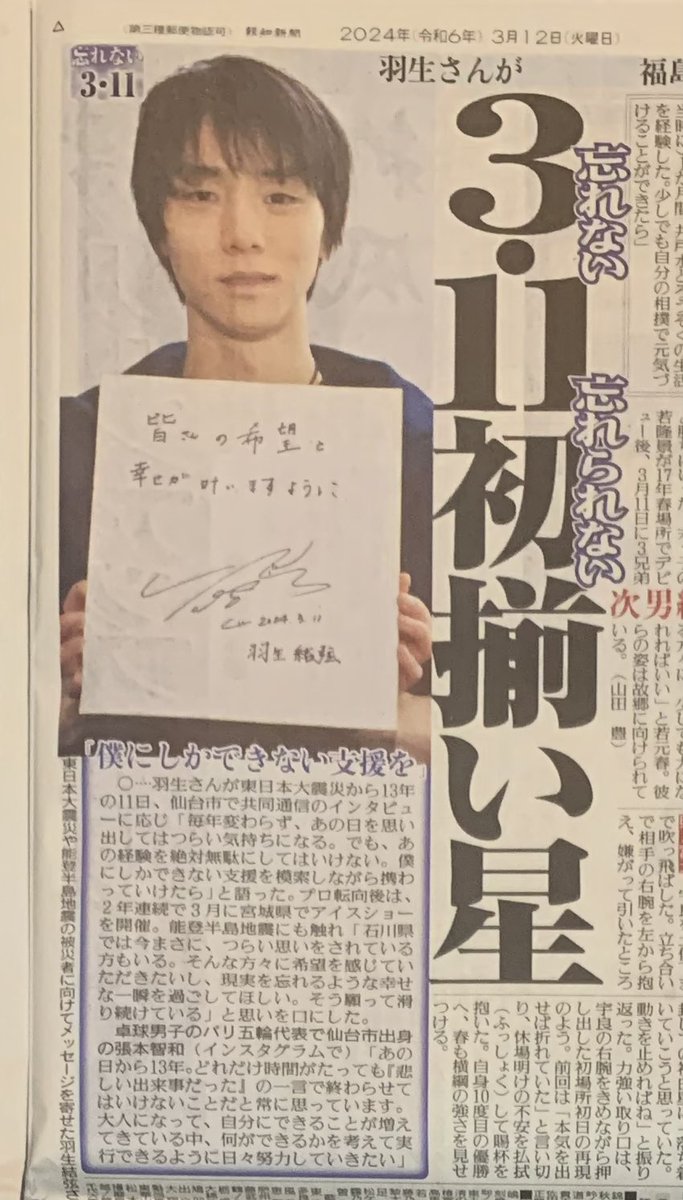 (第三種郵便物認可) 報知新聞
2024年(令和6年) 3月12日(火曜日)
忘れない
3・11
羽生さんが
福島
忘れない
忘れられない
3・11初揃い星
皆さんの希望と
幸せが叶いますように
2024.3.11
羽生結弦
「僕にしかできない支援を」
○…羽生さんが東日本大震災から13年
の11日、仙台市で共同通信のインタビュ
ーに応じ「毎年変わらず、あの日を思い
出してはつらい気持ちになる。でも、あ
の経験を絶対無駄にしてはいけない。僕
にしかできない支援を模索しながら携わ
っていけたら」と語った。プロ転向後は、
2年連続で3月に宮城県でアイスショー
を開催。能登半島地震にも触れ「石川県
では今まさに、つらい思いをされている
方もいる。そんな方々に希望を感じてい
ただきたいし、現実を忘れるような幸せ
な一瞬を過ごしてほしい。そう願って滑
り続けている」と思いを口にした。
卓球男子のパリ五輪代表で仙台市出身
の張本智和(インスタグラムで)「あの
日から13年。どれだけ時間がたっても『悲
しい出来事だった』の一言で終わらせて
はいけないことだと常に思っています。
大人になって、自分にできることが増え
てきている中、何ができるかを考えて実
行できるように日々努力していきたい」
東日本大震災や能登半島地震の被災者に向けてメッセージを寄せた羽生結弦さ
を経験した。少しでも自分の相撲で元気づ
けることができたら」
若隆景が17年春場所でデビ
ュー後、3月11日に3兄弟
次男
ればいい」と若元春。彼
らの姿は故郷に向けられて
いる。(山田 豊)
で吹っ飛ばした。立ち合い
で相手の右腕を左から抱
え、嫌がって引いたところ
いていこうと思っていた。
動きを止めればね」と振り
返った。力強い取り口は、
宇良の右腕をきめながら押
し出した初場所初日の再現
のよう。前回は「本気を出
せば折れていた」と言い切
り、休場明けの不安を払拭
(ふっしょく)して賜杯を
抱いた。自身10度目の優勝
へ、春も横綱の強さを見せ
つける。